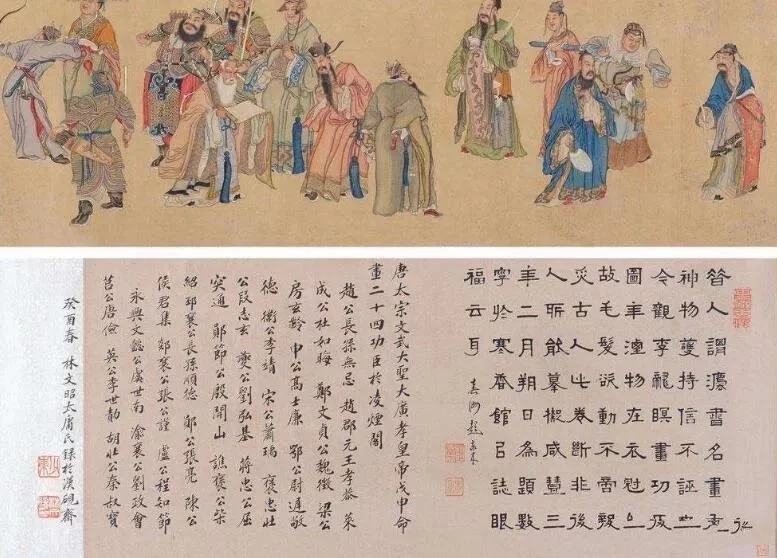 昔人謂灋書名畫
神物護持信不誣
今觀李龍瞑畫功臣
圖年湮物在衣冠
故毛髮欲動不啻
災古人此卷斷非後
人所能摹擬咸豐三
年二月朔日為題
寧於寒香館以誌眼
福云耳
唐太宗文武大聖大廣孝皇帝戊申命
畫二十四功臣於凌煙閣
趙公長孫無忌 趙郡元王孝恭 萊
成公杜如晦 鄭文貞公魏徵 梁公
房玄齡 申公高士廉 鄂公尉遲敬
德 衛公李靖 宋公蕭瑀 褒忠壯
公段志玄 夔公劉弘基 蔣忠公屈
突通 鄖節公殷開山 譙襄公柴
紹 邳襄公長孫順德 鄖公張亮 陳公
侯君集 郯襄公張公謹 盧公程知節
永興文懿公虞世南 渝襄公劉政會
莒公唐儉 英公李世勣 胡壯公秦叔寶
癸酉春 林文昭太庸氏錄於漢硯齋